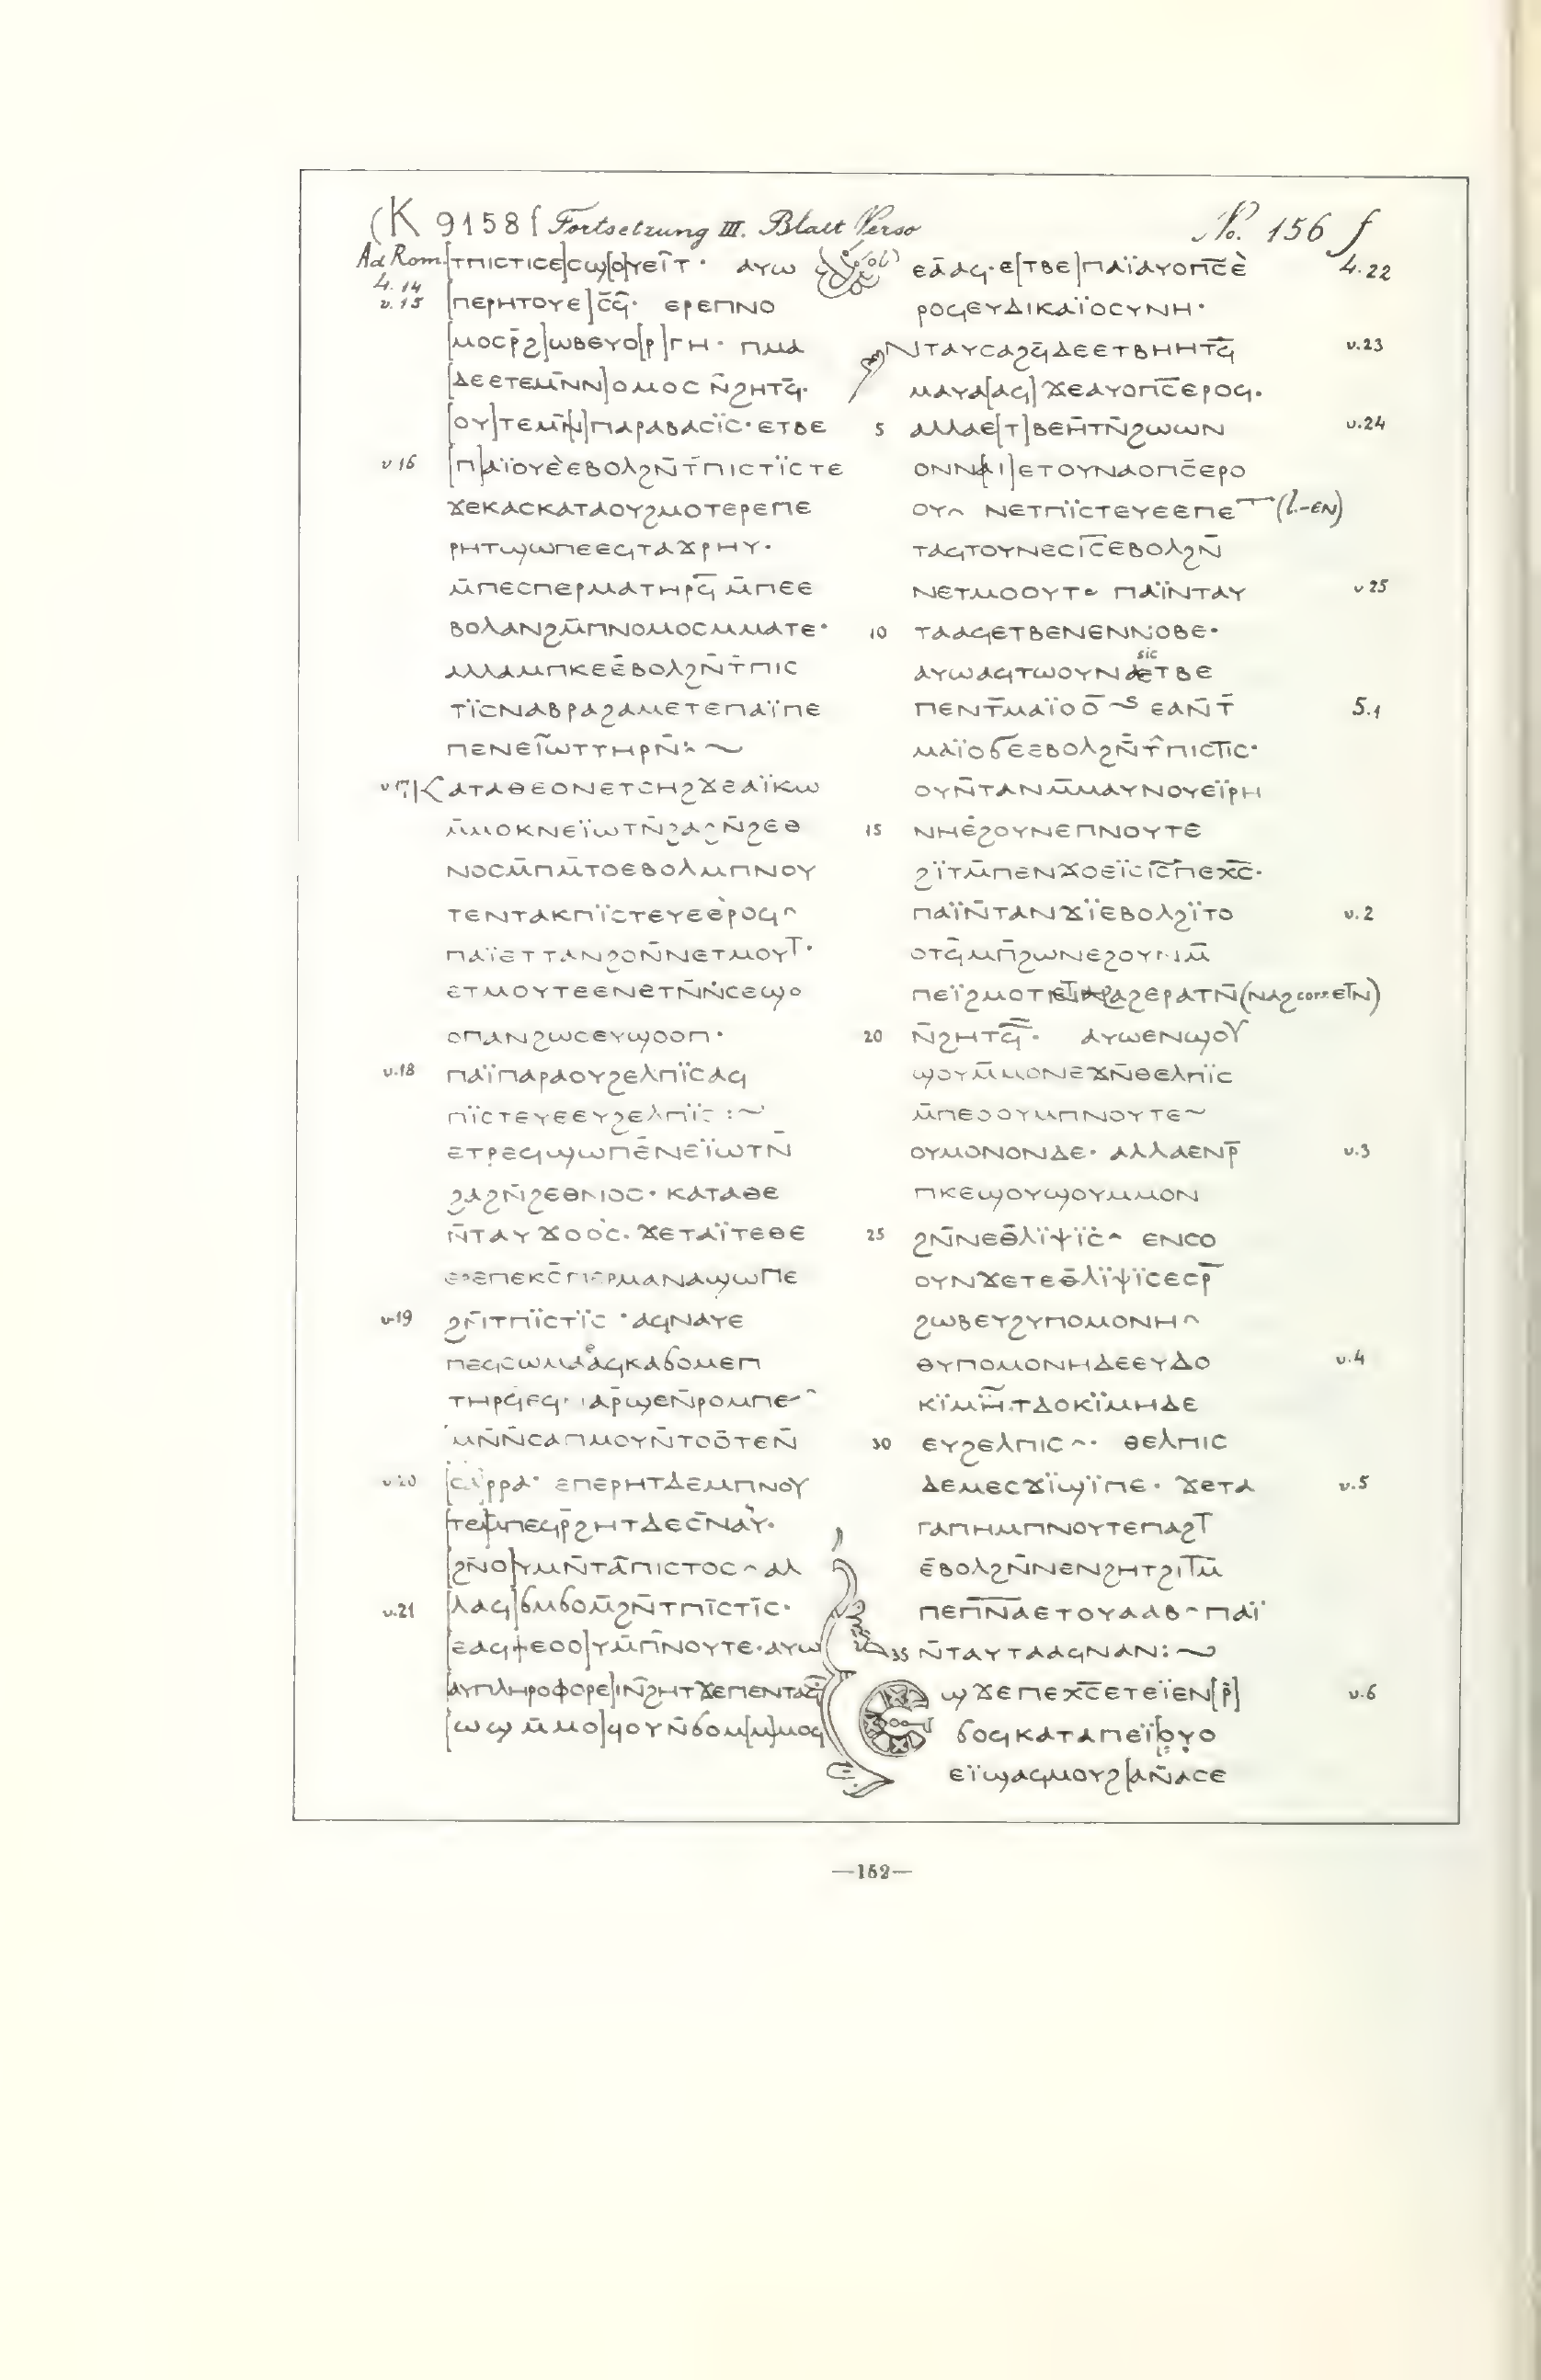 (K 9158 f Fortsetzung III. Blatt Verso
No. 156 f
Ad Rom. 4.14 [ⲧⲡⲓⲥⲧⲓⲥⲉ]ⲥϣ[ⲟ]ⲩⲉⲓ̂ⲧ· ⲁⲩⲱ
v.15 [ⲡⲉⲣⲏⲧⲟⲩⲉ]ⲥ̄ϥ̄· ⲉⲣⲉⲡⲛⲟ
[ⲙⲟⲥⲣ̄ϩ]ⲱⲃⲉⲩⲟ[ⲣ]ⲅⲏ· ⲡⲙⲁ
[ⲇⲉⲉⲧⲉⲙ̄ⲛⲛ]ⲟⲙⲟⲥ ⲛ̄ϩⲏⲧϥ̄·
[ⲟⲩ]ⲧⲉⲙ̄[ⲛ]ⲡⲁⲣⲁⲃⲁⲥⲓ̈ⲥ· ⲉⲧⲃⲉ
v.16 [ⲡ]ⲁⲓ̈ⲟⲩⲉ̀ⲉⲃⲟⲗϩⲛ̄ⲧ̄ⲡⲓⲥⲧⲓ̈ⲥⲧⲉ
ϫⲉⲕⲁⲥⲕⲁⲧⲁⲟⲩϩⲙⲟⲧⲉⲣⲉⲡⲉ
ⲣⲏⲧϣⲱⲡⲉⲉϥⲧⲁϫⲣⲏⲩ·
ⲙ̄ⲡⲉⲥⲡⲉⲣⲙⲁⲧⲏⲣϥ̄ ⲙ̄ⲡⲉⲉ
ⲃⲟⲗⲁⲛϩⲙ̄ⲡⲛⲟⲙⲟⲥⲙⲙⲁⲧⲉ·
ⲁⲗⲗⲁⲙⲡⲕⲉⲉ̄ⲃⲟⲗϩⲛ̄ⲧ̄ⲡⲓⲥ
ⲧⲓ̈ⲥⲛⲁⲃⲣⲁϩⲁⲙⲉⲧⲉⲡⲁⲓ̈ⲡⲉ
ⲡⲉⲛⲉⲓ̈ⲱⲧⲧⲏⲣⲛ̄:~
v.17 ⲕⲁⲧⲁⲑⲉⲟⲛⲉⲧⲥⲏϩϫⲉⲁⲓ̈ⲕⲱ
ⲙ̄ⲙⲟⲕⲛⲉⲓ̈ⲱⲧⲛ̄ϩⲁϩⲛ̄ϩⲉⲑ
ⲛⲟⲥⲙ̄ⲡⲙ̄ⲧⲟⲉⲃⲟⲗⲙⲡⲛⲟⲩ
ⲧⲉⲛⲧⲁⲕⲡⲓ̈ⲥⲧⲉⲩⲉⲉ̀ⲣⲟϥ^
ⲡⲁⲓ̈ⲉⲧⲧⲁⲛϩⲟⲛ̄ⲛⲉⲧⲙⲟⲩⲧ·
ⲉⲧⲙⲟⲩⲧⲉⲉⲛⲉⲧⲛ̄ⲛ̇ⲥⲉϣⲟ
ⲟⲡⲁⲛϩⲱⲥⲉⲩϣⲟⲟⲡ·
v.18 ⲡⲁⲓ̈ⲡⲁⲣⲁⲟⲩϩⲉⲗⲡⲓ̈ⲥⲁϥ
ⲡⲓ̈ⲥⲧⲉⲩⲉⲉⲩϩⲉⲗⲡⲓ̈ⲥ:~
ⲉⲧⲣⲉϥϣⲱⲡⲉ̄ⲛⲉⲓ̈ⲱⲧⲛ̄
ϩⲁϩⲛ̄ϩⲉⲑⲛⲟⲥ· ⲕⲁⲧⲁⲑⲉ
ⲛ̄ⲧⲁⲩϫⲟⲟⲥ· ϫⲉⲧⲁⲓ̈ⲧⲉⲑⲉ
ⲉⲣⲉⲡⲉⲕⲥ̄ⲡⲉⲣⲙⲁⲛⲁϣⲱⲡⲉ
v.19 ϩⲛ̄ⲧⲡⲓ̈ⲥⲧⲓ̈ⲥ ·ⲁϥⲛⲁⲩⲉ
ⲡⲉϥⲥⲱⲙⲁⲉⲁϥⲕⲁϭⲟⲙⲉⲡ
ⲧⲏⲣϥ̄ⲉϥ·ⲁⲣ̄ϣⲉⲛ̄ⲣⲟⲙⲡⲉ^
ⲙⲛ̄ⲛ̄ⲥⲁⲡⲙⲟⲩⲛ̄ⲧⲟⲟ̄ⲧⲉⲛ̄
v.20 [ⲥⲁ]ⲣⲣⲁ· ⲉⲡⲉⲣⲏⲧⲇⲉⲙⲡⲛⲟⲩ
[ⲧⲉ]ⲙⲡⲉϥⲣ̄ϩⲏⲧⲇⲉⲥ̄ⲛⲁⲩ̀·
[ϩⲛ̄ⲟ]ⲩⲙⲛ̄ⲧⲁ̄ⲡⲓⲥⲧⲟⲥ^ ⲁⲗ
v.21 [ⲗⲁϥ]ϭⲙϭⲟⲙ̄ϩⲛ̄ⲧⲡⲓ̄ⲥⲧⲓ̄ⲥ·
[ⲉⲁϥϯⲉⲟⲟ]ⲩⲙ̄ⲡ̄ⲛⲟⲩⲧⲉ·ⲁⲩⲱ
[ⲁⲩⲡⲗⲏⲣⲟⲫⲟⲣⲉ]ⲓⲛ̄ϩⲏⲧϫⲉⲡⲉⲛⲧⲁϥ̄
[ⲱϣ ⲙ̄ⲙⲟ]ϥⲟⲩⲛ̄ϭⲟⲙ[ⲙ]ⲙⲟϥ
ⲉⲁ̄ⲁϥ·ⲉ[ⲧⲃⲉ]ⲡⲁⲓ̈ⲁⲩⲟⲡⲥ̄ⲉ̀ 4.22
ⲣⲟϥⲉⲩⲇⲓⲕⲁⲓ̈ⲟⲥⲩⲛⲏ·
ⲛⲧⲁⲩⲥⲁϩϥ̄ⲇⲉⲉⲧⲃⲏⲏⲧϥ̄ v.23
ⲙⲁⲩⲁ[ⲁϥ]ϫⲉⲁⲩⲟⲡⲥ̄ⲉⲣⲟϥ·
5 ⲁⲗⲗⲁⲉ[ⲧ]ⲃⲉⲏ̄ⲧⲛ̄ϩⲱⲱⲛ v.24
ⲟⲛⲛ[ⲁⲓ]ⲉⲧⲟⲩⲛⲁⲟⲡⲥ̄ⲉⲣⲟ
ⲟⲩ^ ⲛⲉⲧⲡⲓ̈ⲥⲧⲉⲩⲉⲉⲡⲉ (l.-ⲉⲛ)
ⲧⲁϥⲧⲟⲩⲛⲉⲥⲓ̄ⲥ̄ⲉⲃⲟⲗϩⲛ̄
ⲛⲉⲧⲙⲟⲟⲩⲧ· ⲡⲁⲓ̈ⲛⲧⲁⲩ v 25
10 ⲧⲁⲁϥⲉⲧⲃⲉⲛⲉⲛⲛⲟⲃⲉ·
sic
ⲁⲩⲱⲁϥⲧⲱⲟⲩⲛⲉⲧⲃⲉ
ⲡⲉⲛⲧ̄ⲙⲁⲓ̈ⲟⲟ̄ ~ ⲉⲁⲛ̄ⲧ̄ 5.1
ⲙⲁⲓ̈ⲟϭⲉⲉⲃⲟⲗϩⲛ̄ⲧ̂ⲡⲓⲥⲧⲓⲥ·
ⲟⲩⲛ̄ⲧⲁⲛⲙ̄ⲙⲁⲩⲛⲟⲩⲉⲓ̈ⲣⲏ
15 ⲛⲏⲉ̇ϩⲟⲩⲛⲉⲡⲛⲟⲩⲧⲉ
ϩⲓ̈ⲧⲙ̄ⲡⲉⲛϫⲟⲉⲓ̈ⲥⲓ̄ⲥ̄ⲡⲉⲭ̄ⲥ̄·
ⲡⲁⲓ̈ⲛ̄ⲧⲁⲛϫⲓ̈ⲉⲃⲟⲗϩⲓ̈ⲧⲟ v.2
ⲟⲧϥ̄ⲙⲡ̄ϩⲱⲛⲉϩⲟⲩⲛⲙ̄
ⲡⲉⲓ̈ϩⲙⲟⲧ ⲁϩⲉⲣⲁⲧⲛ̄(ⲛⲁϩ corr. ⲉⲧ̄ⲛ)
20 ⲛ̄ϩⲏⲧϥ̄· ⲁⲩⲱⲉⲛϣⲟⲩ
ϣⲟⲩⲙ̄ⲙⲟⲛⲉϫⲛ̄ⲑⲉⲗⲡⲓ̈ⲥ
ⲙ̄ⲡⲉⲟⲟⲩⲙⲡⲛⲟⲩⲧⲉ~
ⲟⲩⲙⲟⲛⲟⲛⲇⲉ· ⲁⲗⲗⲁⲉⲛⲣ̄ v.3
ⲡⲕⲉϣⲟⲩϣⲟⲩⲙⲙⲟⲛ
25 ϩⲛ̄ⲛⲉⲑ̄ⲗⲓ̈ⲯⲓ̈ⲥ^ ⲉⲛⲥⲟ
ⲟⲩⲛϫⲉⲧⲉⲑⲗⲓ̈ⲯⲓ̈ⲥⲉⲥⲣ̄
ϩⲱⲃⲉⲩϩⲩⲡⲟⲙⲟⲛⲏ^
ⲑⲩⲡⲟⲙⲟⲛⲏⲇⲉⲉⲩⲇⲟ v.4
ⲕⲓ̈ⲙⲏ̄.ⲧⲇⲟⲕⲓ̈ⲙⲏⲇⲉ
30 ⲉⲩϩⲉⲗⲡⲓⲥ^· ⲑⲉⲗⲡⲓⲥ
ⲇⲉⲙⲉⲥϫⲓ̈ϣⲓ̈ⲡⲉ· ϫⲉⲧⲁ v.5
ⲅⲁⲡⲏⲙⲡⲛⲟⲩⲧⲉⲡⲁϩⲧ
ⲉ̄ⲃⲟⲗϩⲛ̄ⲛⲉⲛϩⲏⲧϩⲓⲧⲙ̄
ⲡⲉⲡ̄ⲛ̄ⲁⲉⲧⲟⲩⲁⲁⲃ^ⲡⲁⲓ̈
35 ⲛ̄ⲧⲁⲩⲧⲁⲁϥⲛⲁⲛ:~
ⲉϣϫⲉⲡⲉⲭ̄ⲥ̄ⲉⲧⲉⲓ̈ⲉⲛ[ⲣ̄] v.6
ϭⲟϥⲕⲁⲧⲁⲡⲉⲓ̈[ⲟⲩⲟ
ⲉⲓ̈ϣⲁϥⲙⲟⲩϩ[ⲁⲛ̄ⲁⲥⲉ
—152—